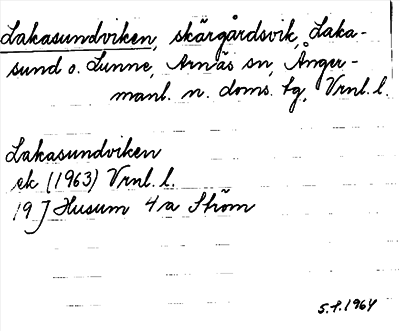 Lakasundviken, skärgårdsvik, Laka-
sund o. Lunne, Arnäs sn, Ånger-
manl. n. doms. tg, Vrnl. l.
Lakasundviken
ek (1963) Vrnl. l.
19 J Husum 4 a Ström
5.8.1964